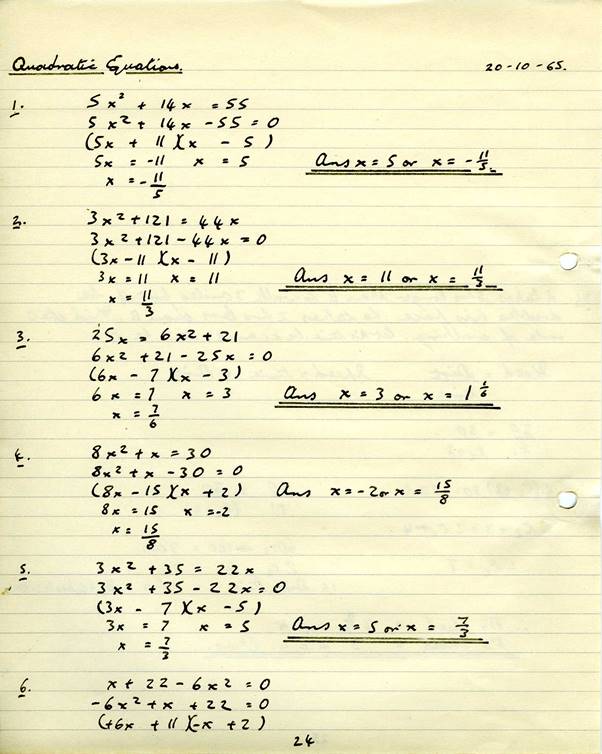 Quadratic Equations. 20-10-65.
1. 5x² + 14x = 55
5x² + 14x - 55 = 0
(5x + 11)(x - 5)
5x = -11 x = 5 Ans x = 5 or x = -11/5.
x = -11/5
2. 3x² + 121 = 44x
3x² + 121 - 44x = 0
(3x - 11)(x - 11)
3x = 11 x = 11 Ans x = 11 or x = 11/3
x = 11/3
3. 25x = 6x² + 21
6x² + 21 - 25x = 0
(6x - 7)(x - 3)
6x = 7 x = 3 Ans x = 3 or x = 1 1/6
x = 7/6
4. 8x² + x = 30
8x² + x - 30 = 0
(8x - 15)(x + 2) Ans x = -2 or x = 15/8
8x = 15 x = -2
x = 15/8
5. 3x² + 35 = 22x
3x² + 35 - 22x = 0
(3x - 7)(x - 5)
3x = 7 x = 5 Ans x = 5 or x = 7/3
x = 7/3
6. x + 22 - 6x² = 0
-6x² + x + 22 = 0
(+6x + 11)(-x + 2)
24